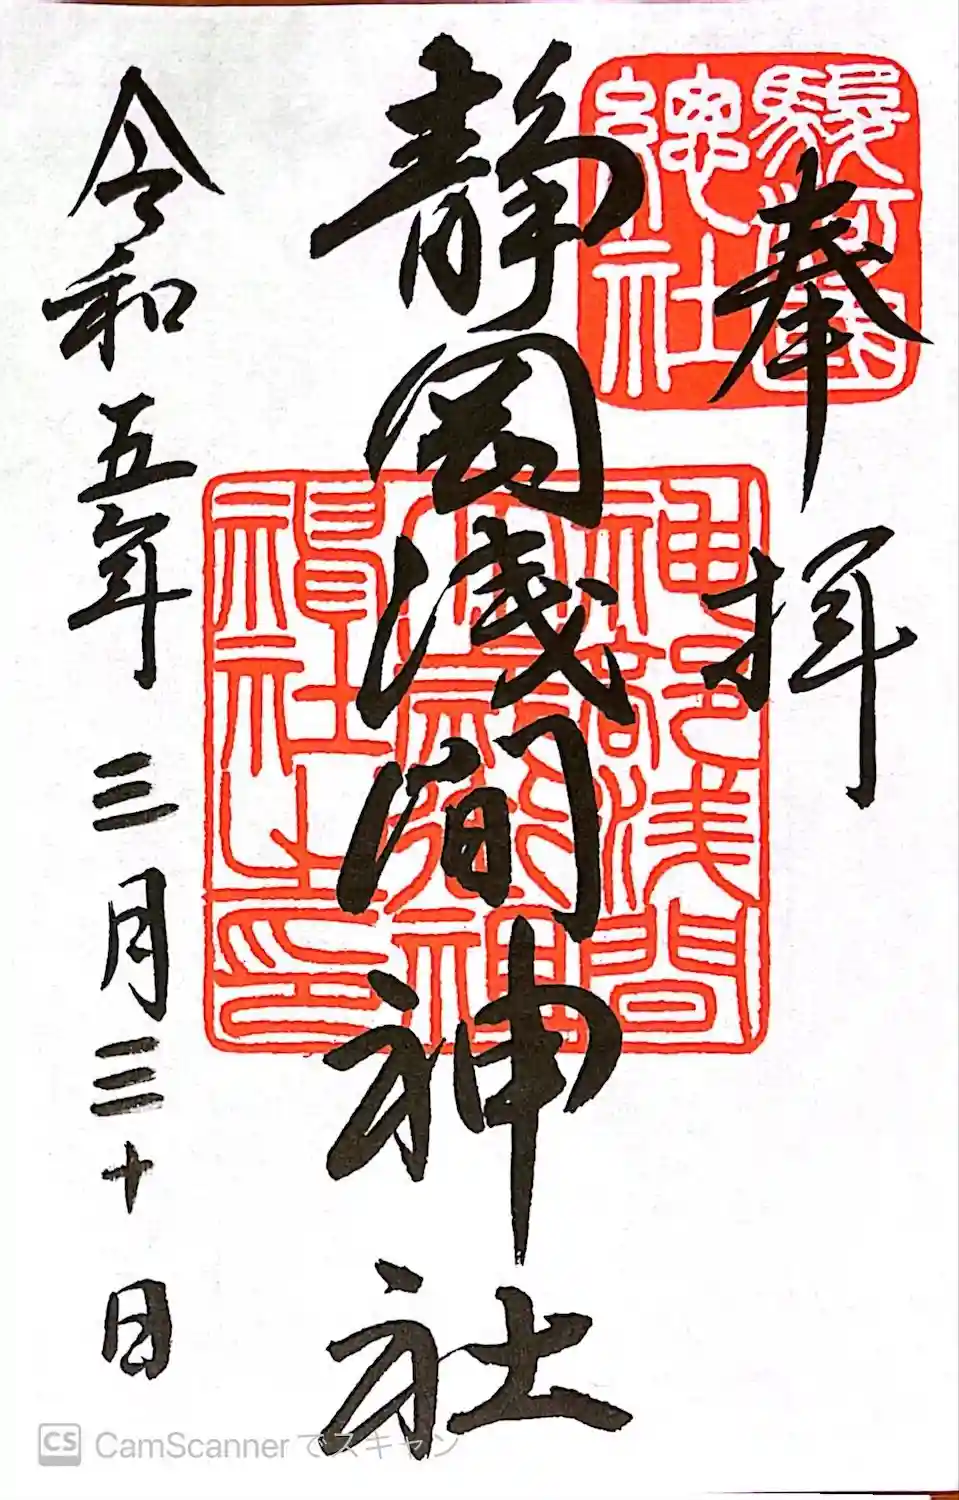 奉拝
駿河國
總社
静岡浅間神社
神部浅間
大歳御祖
神社之印
令和五年三月三十日
CS CamScannerでスキャン